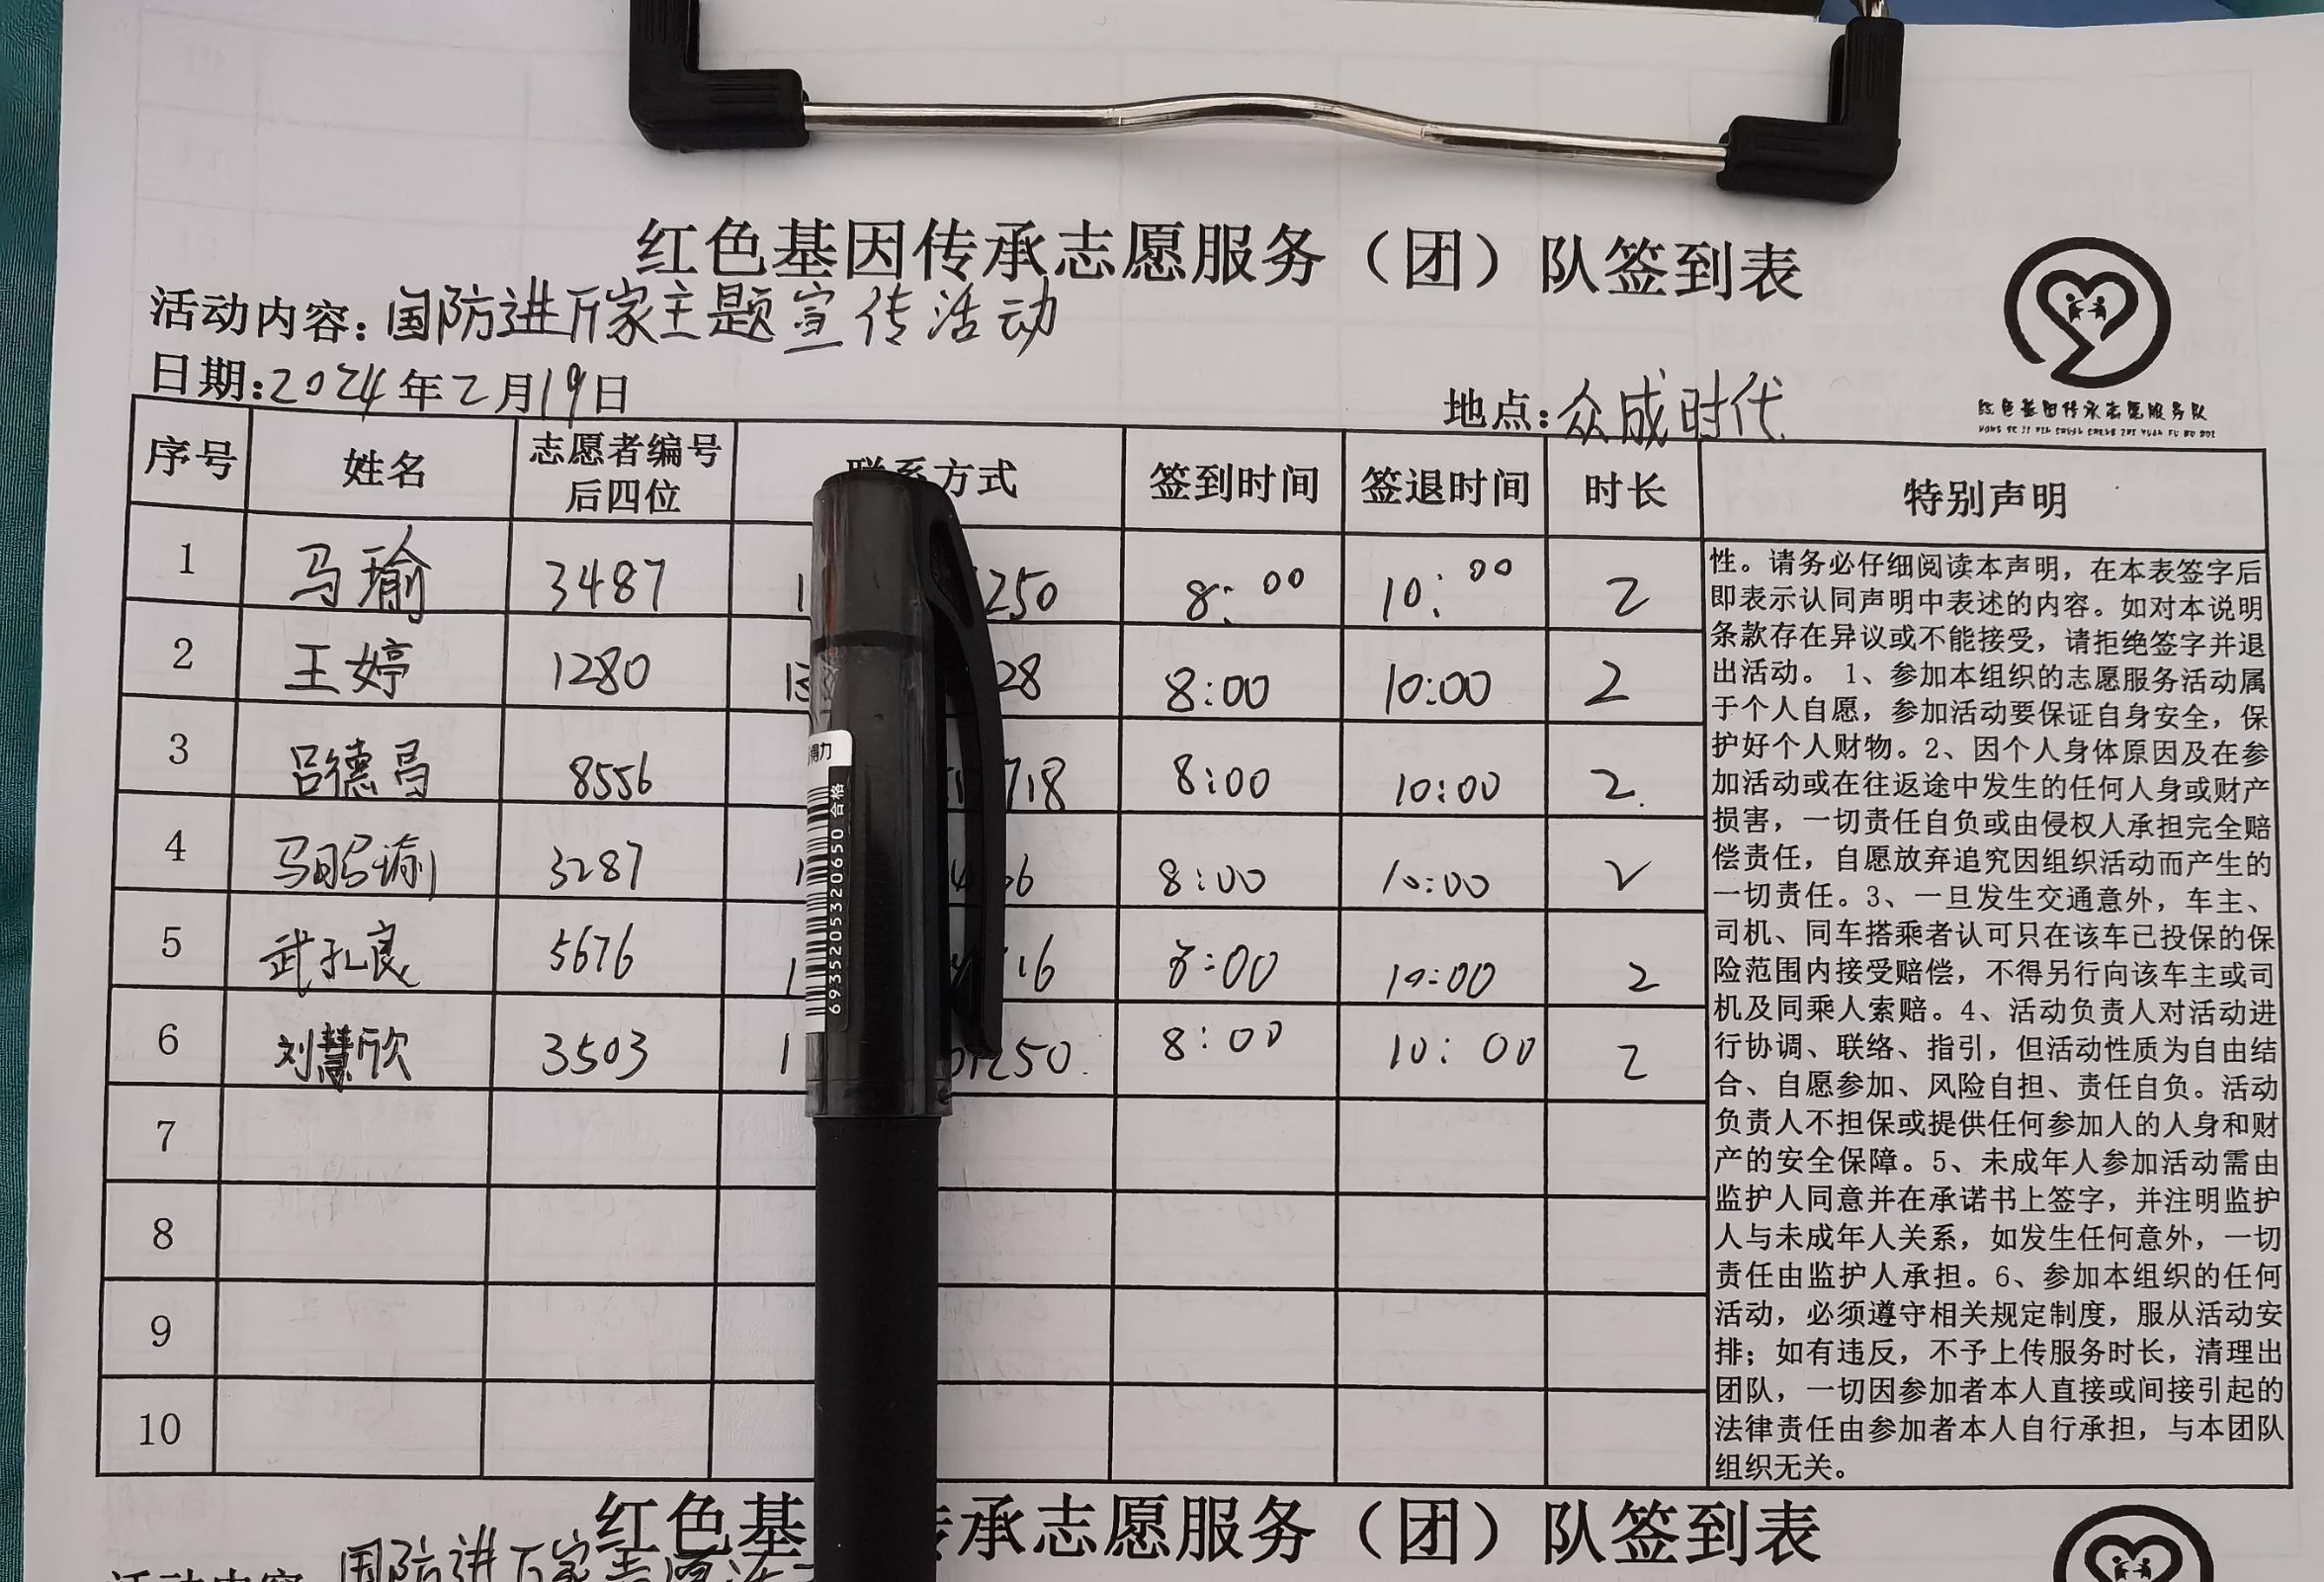 红色基因传承志愿服务（团）队签到表
活动内容：国防进万家主题宣传活动
日期：2024年2月19日
地点：众成时代
红色基因传承志愿服务队
序号 姓名 志愿者编号后四位 联系方式 签到时间 签退时间 时长 特别声明
1 马瑜 3487 1 250 8:00 10:00 2
2 王婷 1280 13 28 8:00 10:00 2
3 吕德昌 8556 718 8:00 10:00 2
4 马昭瑜 3287 1 6 8:00 10:00 2
5 武孔良 5676 1 16 8:00 10:00 2
6 刘慧欣 3503 1 1250 8:00 10:00 2
7
8
9
10
性。请务必仔细阅读本声明，在本表签字后
即表示认同声明中表述的内容。如对本说明
条款存在异议或不能接受，请拒绝签字并退
出活动。 1、参加本组织的志愿服务活动属
于个人自愿，参加活动要保证自身安全，保
护好个人财物。2、因个人身体原因及在参
加活动或在往返途中发生的任何人身或财产
损害，一切责任自负或由侵权人承担完全赔
偿责任，自愿放弃追究因组织活动而产生的
一切责任。3、一旦发生交通意外，车主、
司机、同车搭乘者认可只在该车已投保的保
险范围内接受赔偿，不得另行向该车主或司
机及同乘人索赔。4、活动负责人对活动进
行协调、联络、指引，但活动性质为自由结
合、自愿参加、风险自担、责任自负。活动
负责人不担保或提供任何参加人的人身和财
产的安全保障。5、未成年人参加活动需由
监护人同意并在承诺书上签字，并注明监护
人与未成年人关系，如发生任何意外，一切
责任由监护人承担。6、参加本组织的任何
活动，必须遵守相关规定制度，服从活动安
排；如有违反，不予上传服务时长，清理出
团队，一切因参加者本人直接或间接引起的
法律责任由参加者本人自行承担，与本团队
组织无关。
得力
6935205320650 合格
红色基 传承志愿服务（团）队签到表
活动内容 国防进万家